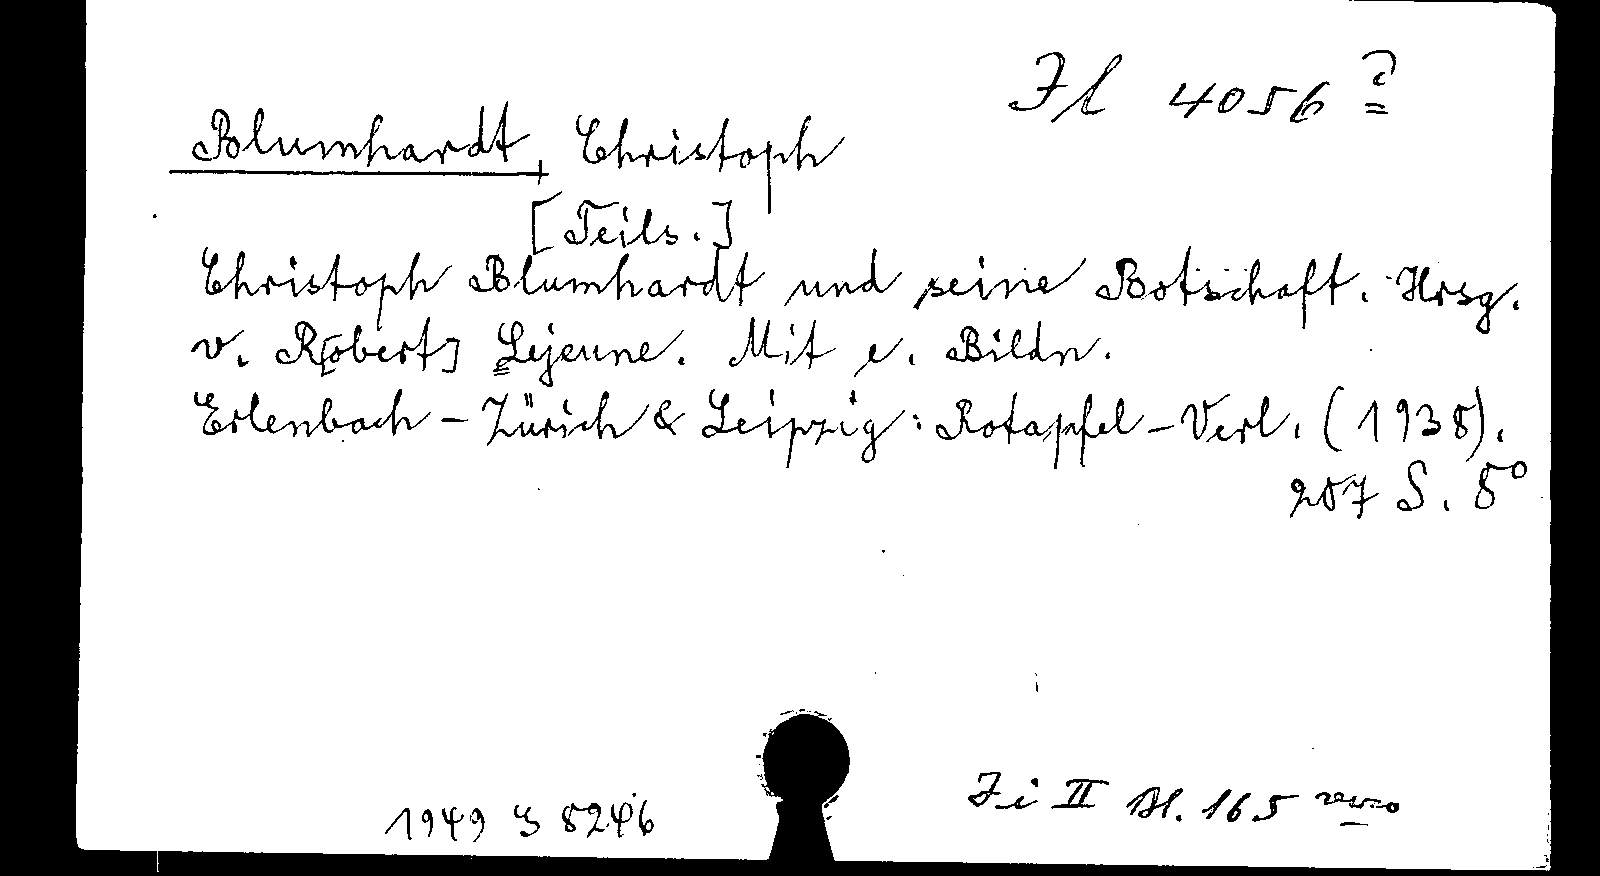 Jl 4056 a
Blumhardt, Christoph
[Teils.]
Christoph Blumhardt und seine Botschaft. Hrsg.
v. R[obert] Lejeune. Mit e. Bildn.
Erlenbach-Zürich & Leipzig: Rotapfel-Verl. (1938).
207 S. 8°
1949 8246
Ji II Bl. 165 verso